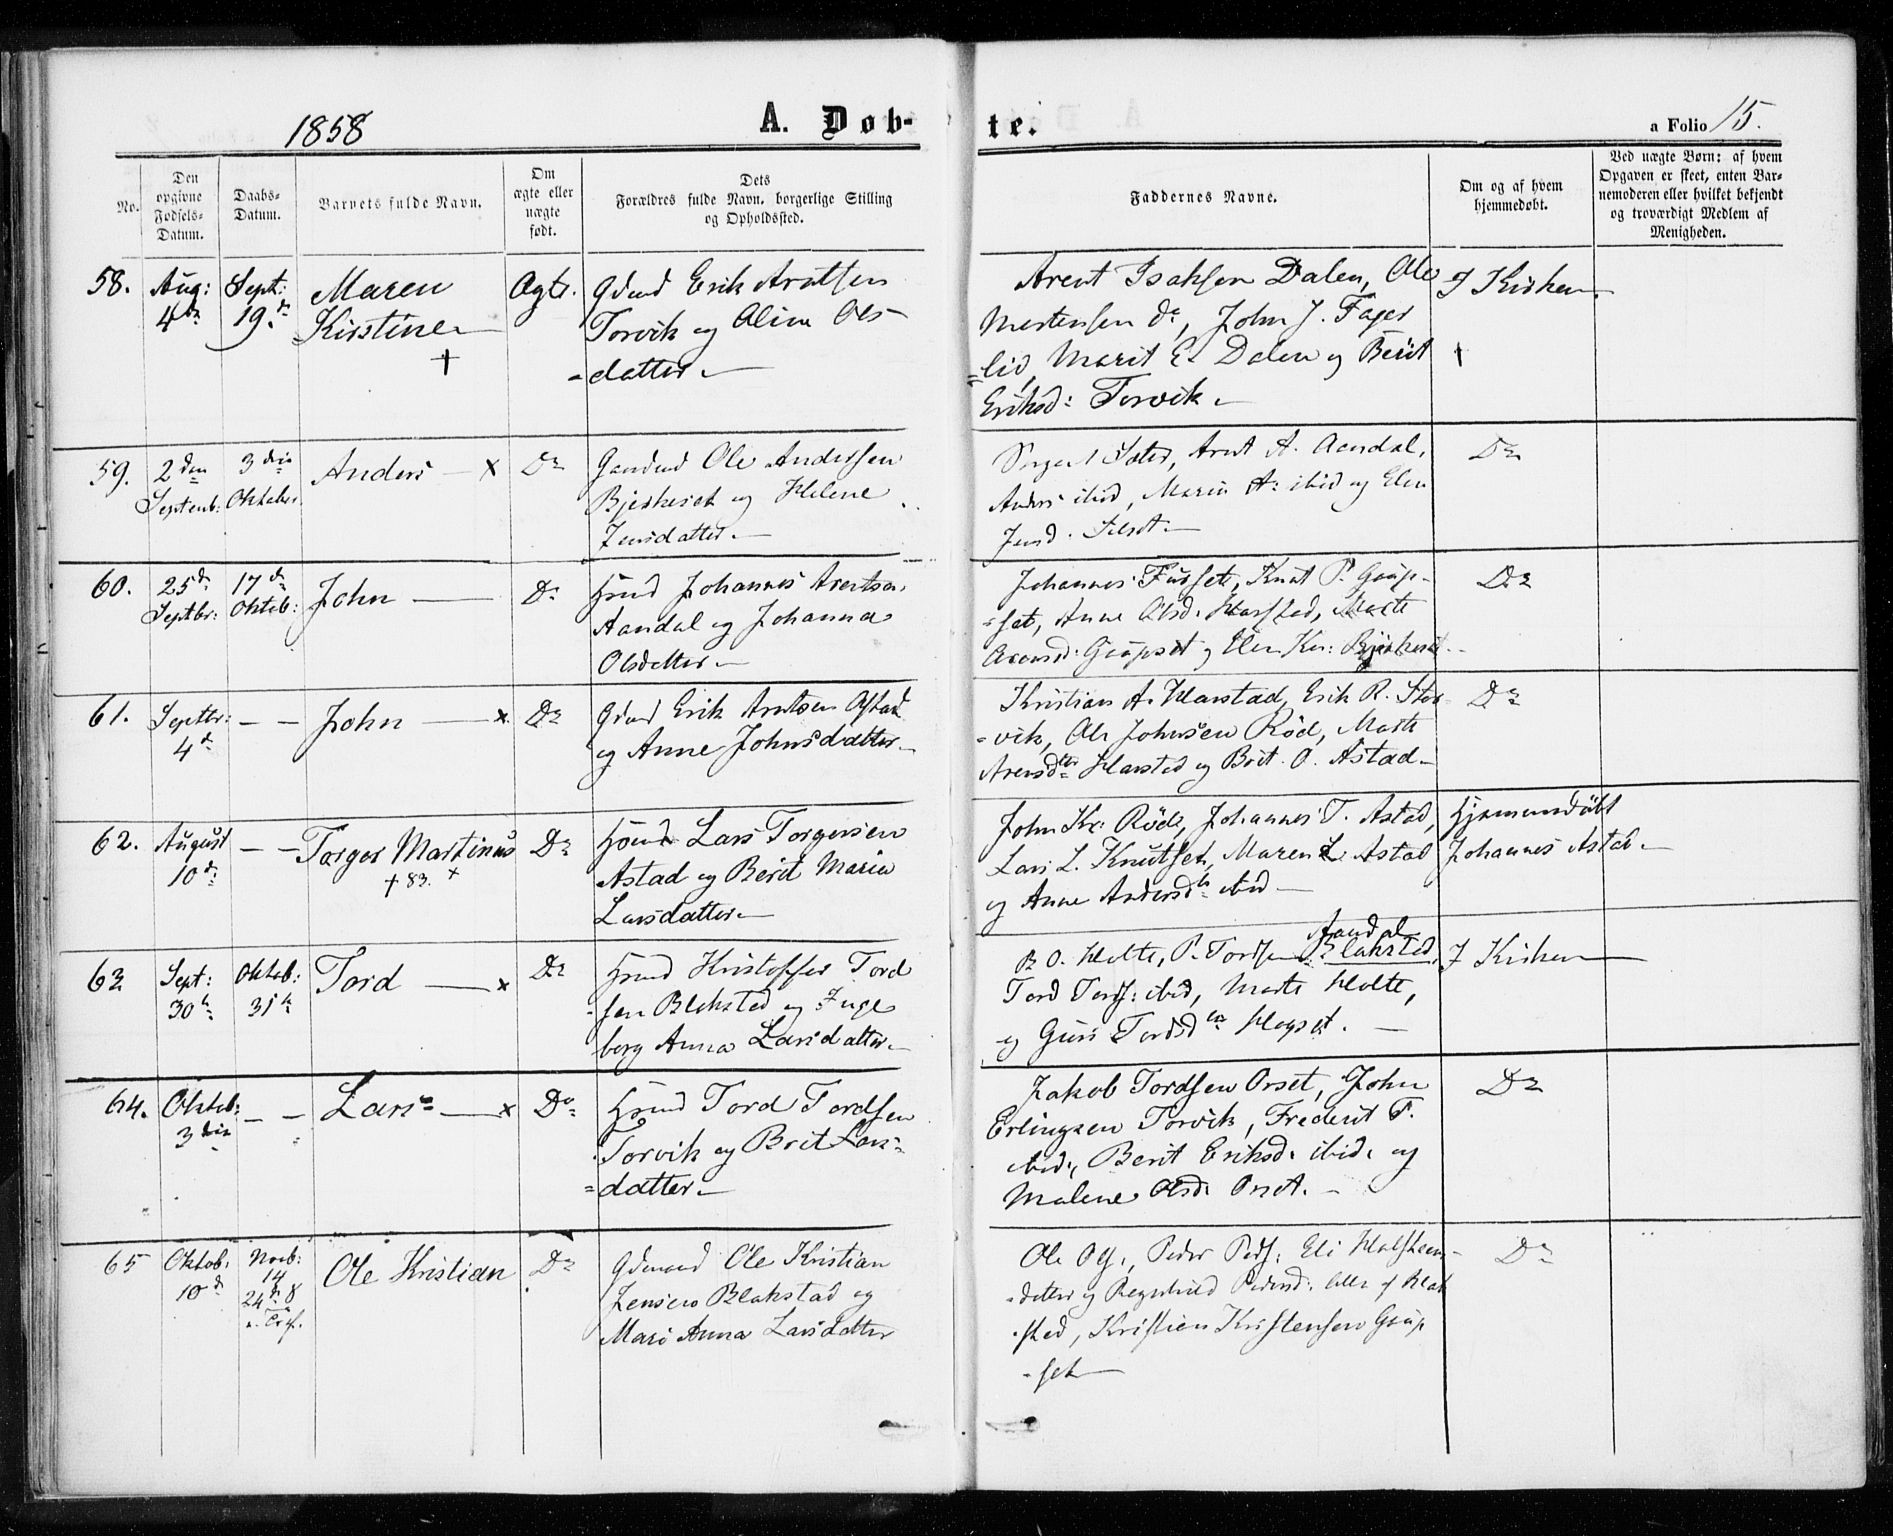 1858
A. Døb-
te.
a Folio 15.
No.
Den opgivne Fødsels-Datum.
Daabs-Datum.
Barnets fulde Navn.
Om ægte eller uægte født.
Dets Forældres fulde Navn, borgerlige Stilling og Opholdssted.
Faddernes Navne.
Om og af hvem hjemmedøbt.
Ved uægte Børn: af hvem Opgaven er skeet, enten Barnemoderen eller hvilket bekjendt og troværdigt Medlem af Menigheden.
58.
Aug:
4de
Sept:
19de
Maren
Kirstine
+
Ægte.
Gdmd Erik Arntsen
Torvik og Oline Ols-
-datter.
Arent Isaksen Dalen, Ole
Mortensen do, John J. Fager
=lid, Marit E. Dalen og Berit
Eriksd: Torvik.
I Kirken
+
59.
2den
Septemb:
3die
Oktober.
Anders x
Do
Ole Andersen
og Helene
Jensdatter.
Arnt A. Aandal,
Anders ibid, Maren A: ibid og Elen
Jensd.
Do
60.
25de
Septbr:
17de
Oktob:
John
Do
Hmd Johannes Arentsen
Aandal og Johanna
Olsdatter.
Johannes Furset, Knut P. Gaup-
-set, Anne Olsd. Harstad, Marte
Arensd: Gaupset og Elen Kr:
Do
61.
Septbr:
4de
- -
John x
Do
Gdmd Erik Arntsen Astad
og Anne Johnsdatter.
Kristian A. Harstad, Erik R. Stor
-vik, Ole Johnsen Röd, Marte
Arensdtr Harstad og Brit. O. Astad.
Do
62.
August
10de
- -
Torger Martinus
+ 83. +
Do
Lars Torgersen
Astad og Berit Maria
Larsdatter.
John Kr: Röd, Johannes T. Astad,
Lars L. Knutset, Maren L. Astad
og Anne Andersdtr ibid
Hjemmedöbt
Johannes Astad.
63
Sept:
30te
Oktob:
31te
Tord x
Do
Hmd Kristoffer Tord
-sen Blakstad og Inge
borg Anna Larsdatter.
B O. Holte, P. Tordsen Blakstad,
Aandal
Tord Tords: ibid, Marte Holte,
og Guri Tordsdtr Hogset.
I Kirken
64.
Oktob:
3die
- -
Lars x
Do
Hmd Tord Tordsen
Torvik og Brit Lars=
=datter.
Jakob Tordsen Orset, John
Erlingsen Torvik, Frederik T.
ibid, Berit Eriksd. ibid. og
Malene Olsd. Orset.
Do
65
Oktob:
10de
Novb:
14
24 8
Ole Kristian
Do
Gdmand Ole Kristian
Jensen Blakstad og
Mari Anna Larsdatter
Ole Ols:, Peder Peds: Eli Halsteen-
-datter og Ragnhild Pedersd: alle af Blak
-sted, Kristian Kristensen Gaup
-set
Do